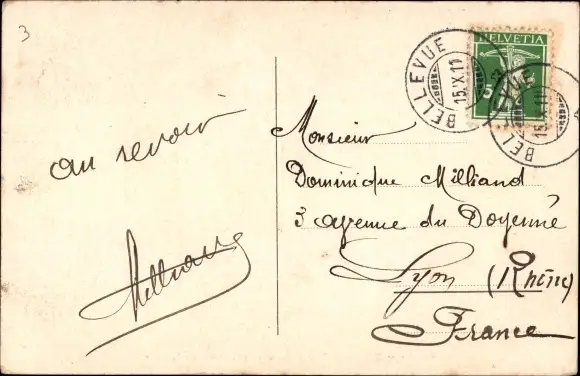 3
au revoir
Milliand
HELVETIA
5
BELLEVUE
15.X.11
BELLEVUE
15.X.11
Monsieur
Dominique Milliand
3 avenue du Doyenné
Lyon (Rhône)
France